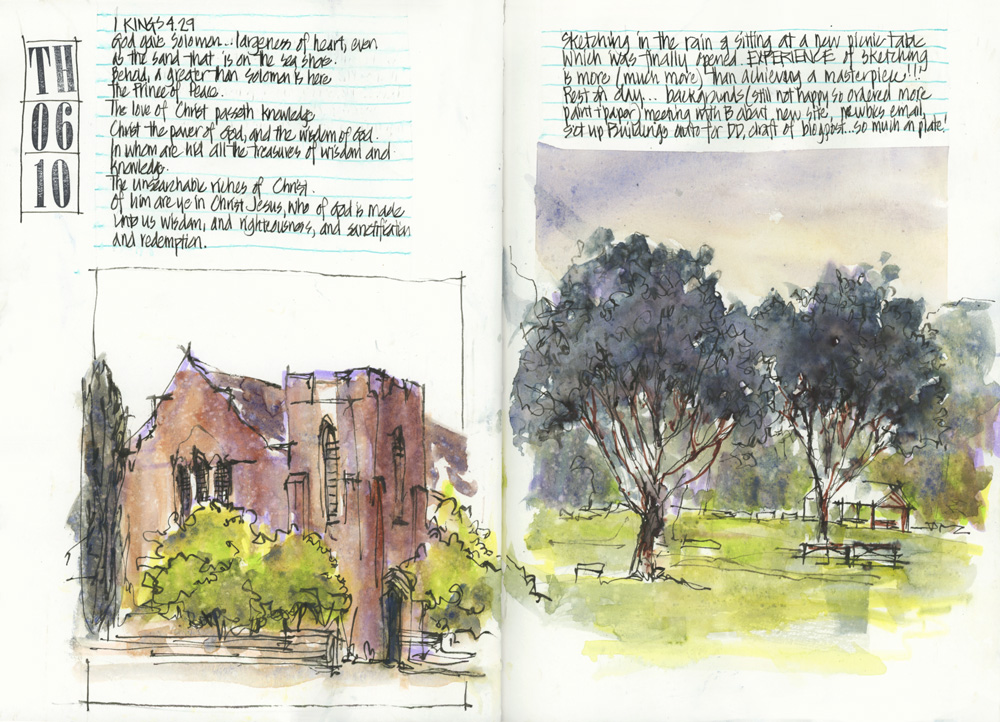 TH
06
10
1 KINGS 4.29
God gave Solomon... largeness of heart, even
as the sand that is on the sea shore.
Behold, a greater than Solomon is here
The Prince of Peace.
The love of Christ passeth knowledge
Christ the power of God, and the wisdom of God.
In whom are hid all the treasures of wisdom and
knowledge.
The unsearchable riches of Christ.
Of him are ye in Christ Jesus, who of God is made
unto us wisdom, and righteousness, and sanctification
and redemption.
Sketching in the rain & sitting at a new picnic table
which was finally opened. EXPERIENCE of sketching
is more (much more) than achieving a masterpiece!!!
Rest of day... backgrounds (still not happy so ordered more
paint + paper) meeting with B about new site, newbies email,
set up Buildings auto for DD, draft of blogpost... so much on plate!